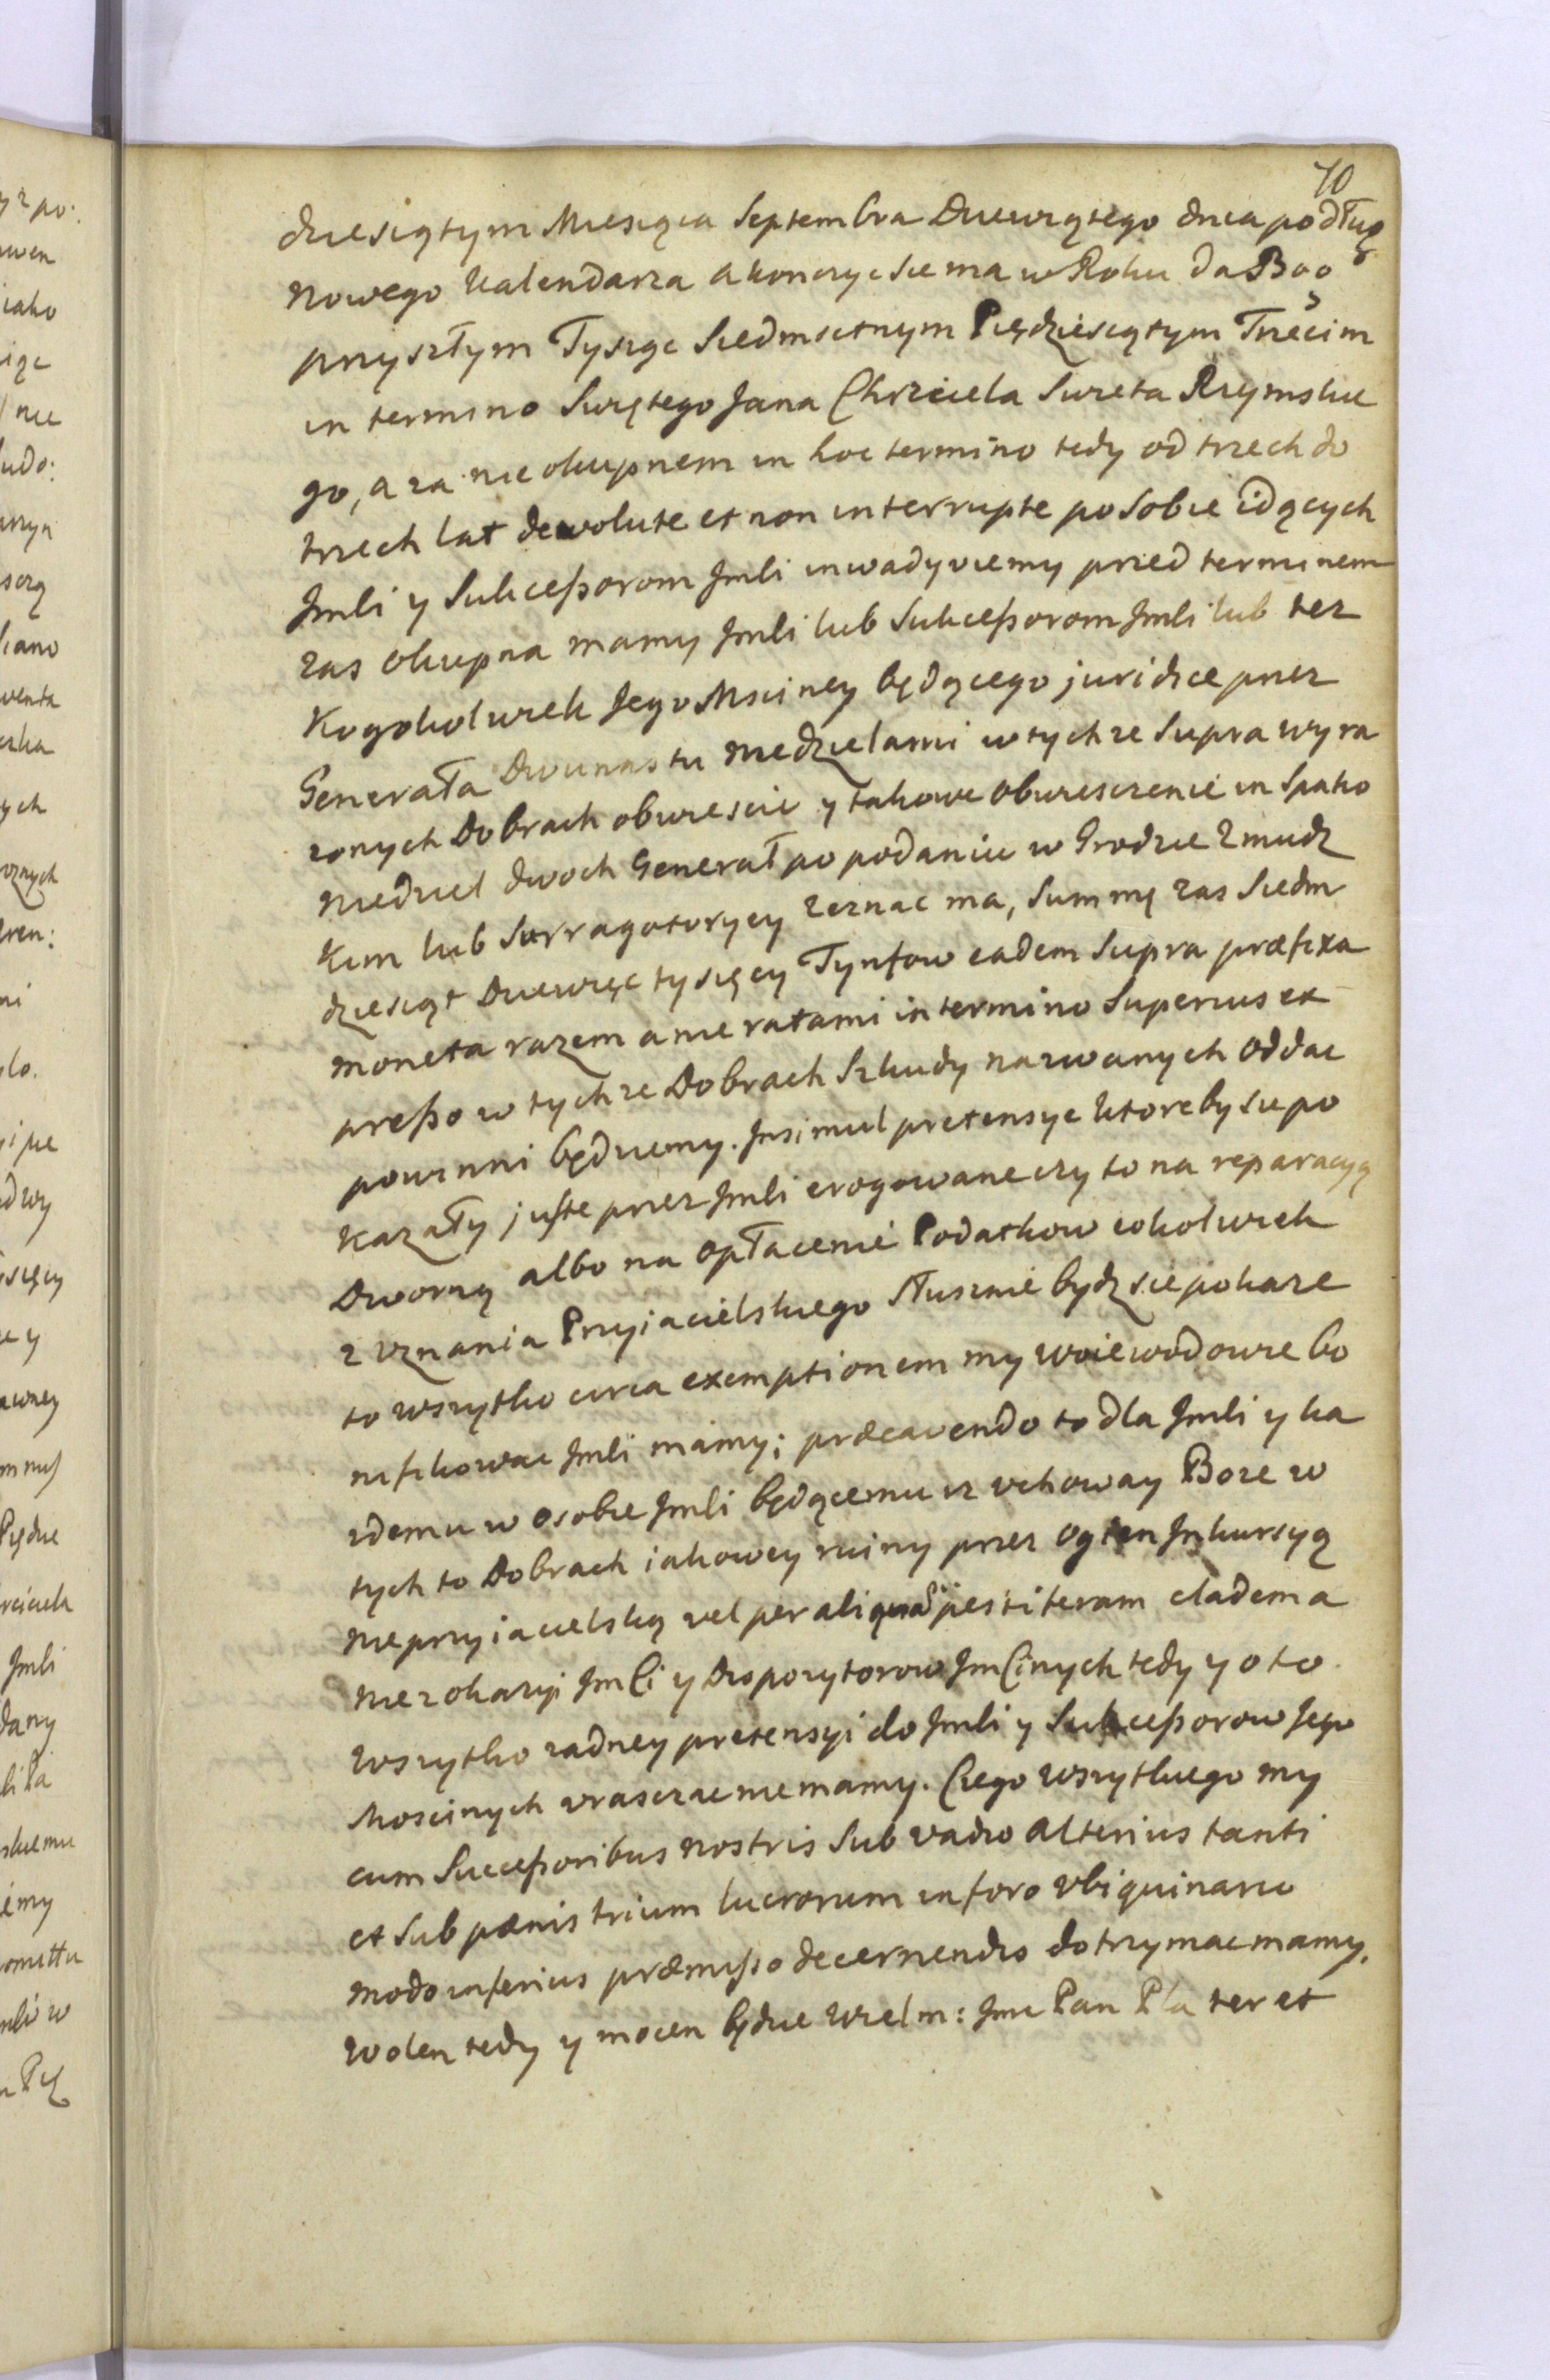 70
dziesiątym Miesiąca Septembra Dziewiątego dnia podług
Nowego Kalendarza a konczyc sie ma w Roku da Bog
przyszłym Tysiąc Siedmsetnym Piędziesiątym Trzecim
in termino Swiętego Jana Chrzciela Swieta Rzymskie
go, a za nie okupnem in hoc termino tedy od trzech do
trzech lat dewolute et non interrupte po sobie idących
Jmści y Sukceßorom Jmści inwadyuiemy przed terminem
zas okupna mamy Jmści lub Sukceßorom Jmści lub tez
Kogokolwiek Jego Msciney będącego juridice przez
Generała Dwunastu Niedzielami w tychze supra wyra
zonych Dobrach obwiescic y takowe obwiesczenie in spatio
Niedziel dwoch Generał po podaniu w Grodzie Zmudz
kim lub Surragatoryey zeznac ma, Summę zas Siedm
dziesiąt Dziewięc tysięcy Tynfow eadem supra præfixa
moneta razem a nie ratami in termino superius ex
preßo w tychze Dobrach Szkudy nazwanych oddac
powinni będziemy. Insimul pretensye ktoreby sie po
kazały juste przez Jmści erogowane czy to na reparacyą
Dworną albo na opłacenie Podatkow cokolwiek
z vznania Przyiacielskiego słusznie bydz sie pokaze
to wszytko circa exemptionem my Woiewodowie bo
nifikowac Jmści mamy; præcavendo to dla Jmści y ka
zdemu w osobie Jmści będącemu iz vchoway Boze w
tych to Dobrach iakowey ruiny przez ogien Inkursyą
Nieprzyiacielską vel per aliquã pestiferam cladem a
nie z okazyi JmCi y Dispozytorow JmCinych tedy y o to
wszytko zadney pretensyi do Jmści y Sukceßorow Jego
Moscinych wrasczac nie mamy. Czego wszytkiego my
cum Succeßoribus nostris sub vadio alterius tanti
et sub pænis trium lucrorum in foro vbiquinario
modo inferius præmißo decernendis dotrzymac mamy.
Wolen tedy y mocen będzie Wielm: Jmc Pan Plater et